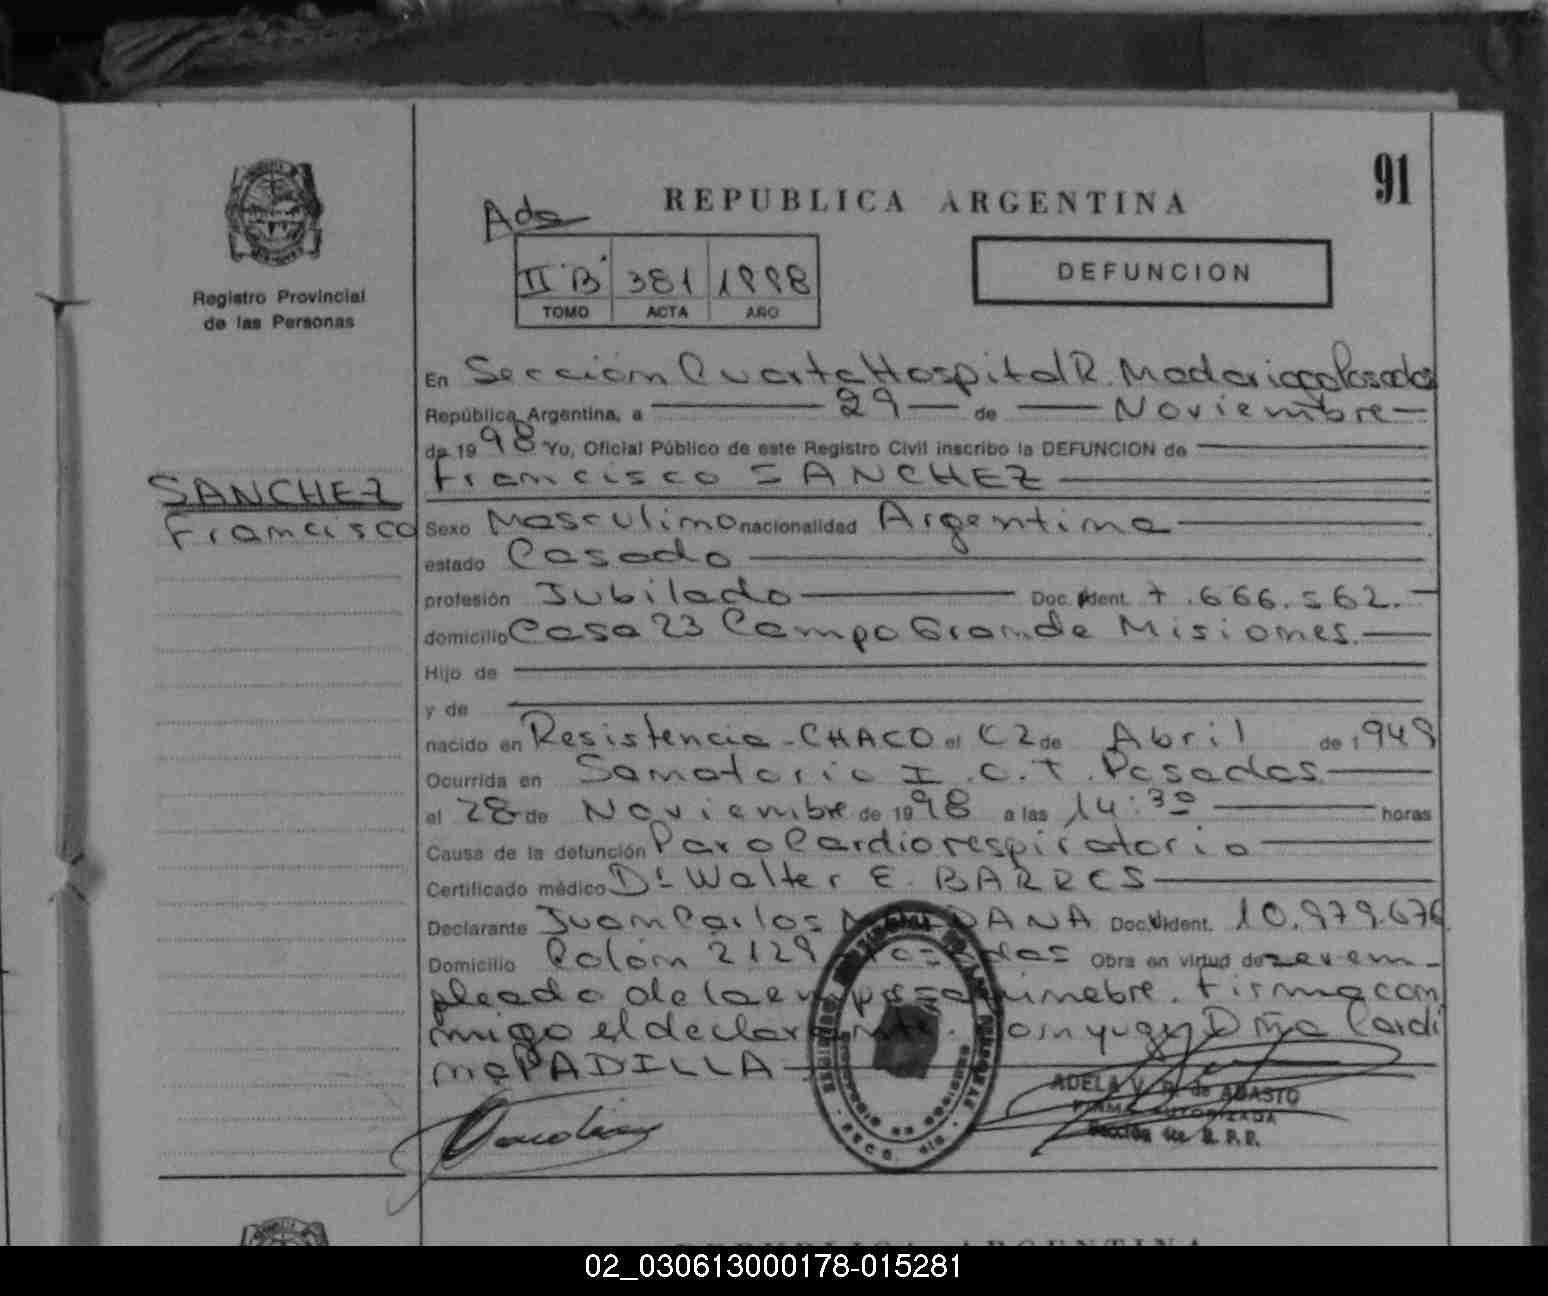 91
REPUBLICA ARGENTINA
Registro Provincial
de las Personas
II "B" 381 1998
TOMO ACTA AÑO
DEFUNCION
En Sección Cuarta Hospital R. Madariaga Posadas
República Argentina, a 29 de Noviembre
de 1998 Yo, Oficial Público de este Registro Civil inscribo la DEFUNCION de
Francisco SANCHEZ
SANCHEZ
Francisco
Sexo Masculino nacionalidad Argentina
estado Casado
profesión Jubilado Doc. Ident. 7.666.562.
domicilio Casa 23 Campo Grande Misiones.
Hijo de
y de
nacido en Resistencia - CHACO el 02 de Abril de 1949
Ocurrida en Sanatorio I.O.T. Posadas
el 28 de Noviembre de 1998 a las 14:30 horas
Causa de la defunción Paro Cardiorespiratorio
Certificado médico Dr Walter E. BARRES
Declarante Juan Carlos DANA Doc. Ident. 10.979.676
Domicilio Colón 2129 Posadas Obra en virtud de ser em-
pleado de la empresa fúnebre. Firma con
migo el declarante. Conyuge Dña Cardi
na PADILLA
ADELA V. R. de ABASTO
FIRMA AUTORIZADA
Sección 4ta. R. P. P.
REPUBLICA ARGENTINA
02_030613000178-015281